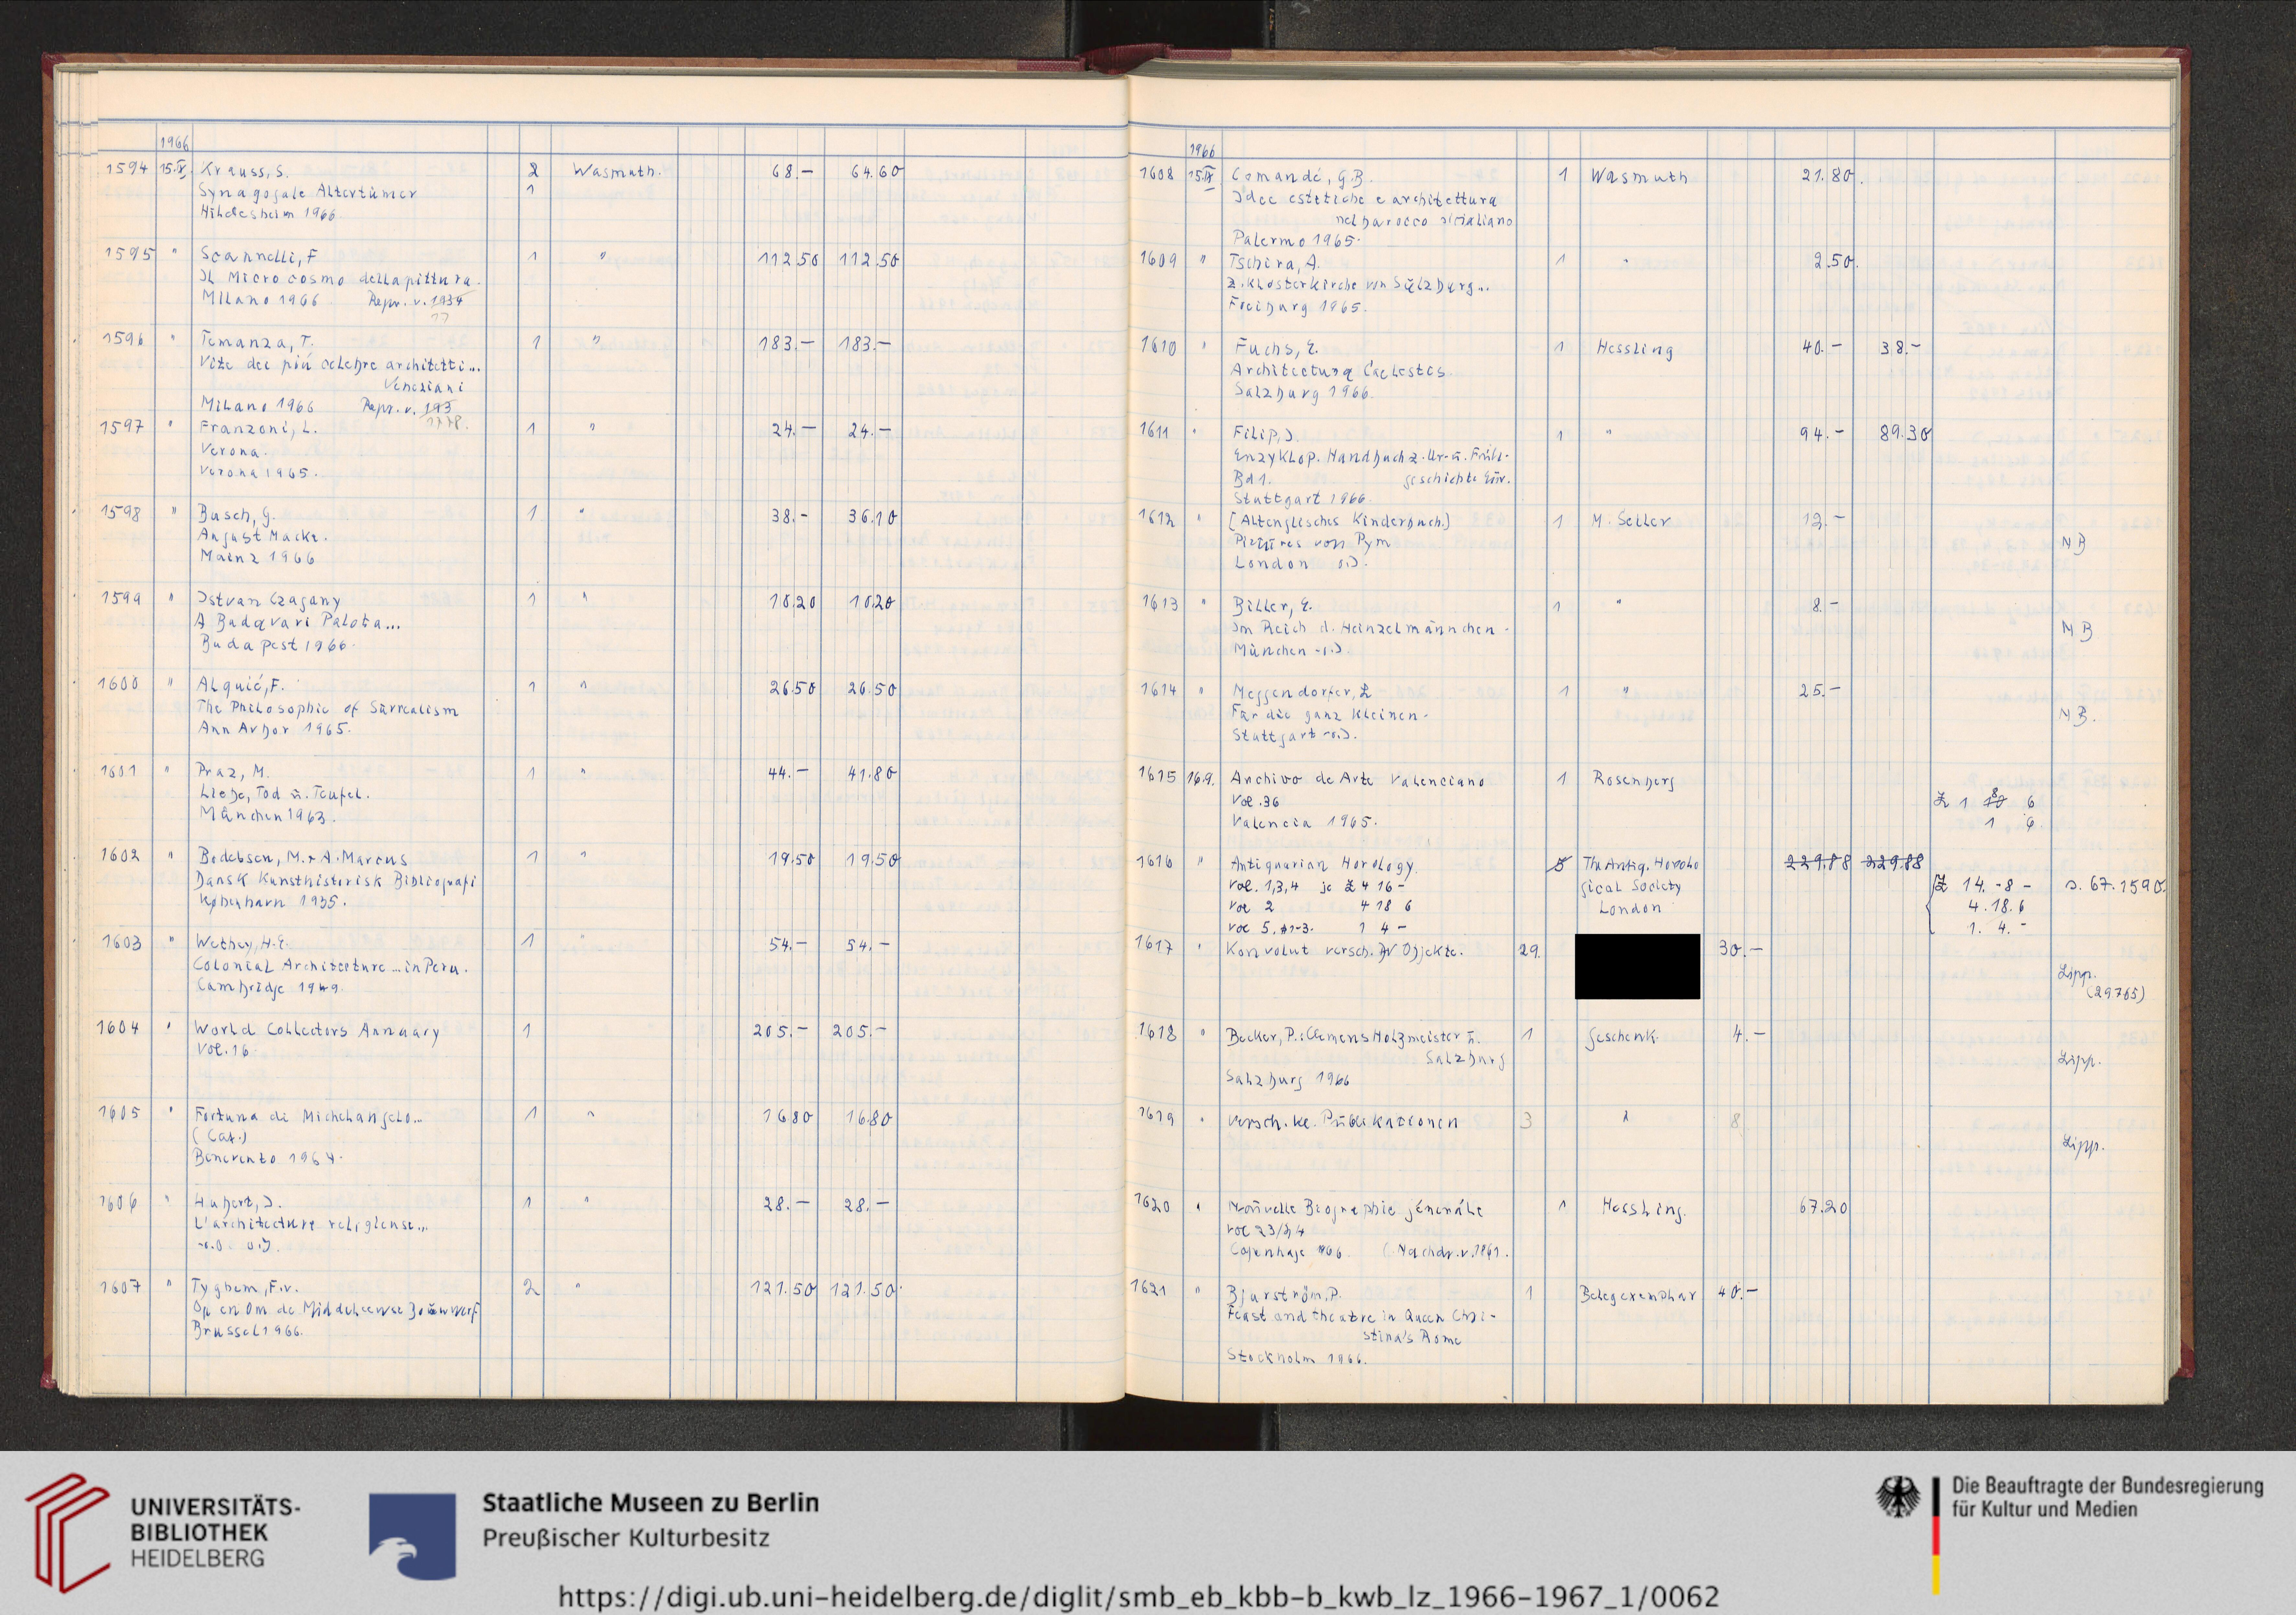 1966
1594 15.IX. Krauss, S. 2 Wasmuth. 68.— 64.60
Synagogale Altertümer 1
Hildesheim 1966
1595 " Scannelli, F 1 " 112.50 112.50
Il Microcosmo della pittura.
Milano 1966 Repr. v. 1934
17
1596 " Temanza, T. 1 " 183.— 183.—
Vite dei più celebre architetti...
Veneziani
Milano 1966 Repr. v. 193
1778.
1597 " Franzoni, L. 1 " 24.— 24.—
Verona.
Verona 1965.
1598 " Busch, G. 1 " 38.- 36.10
August Macke.
Mainz 1966
1599 " Istvan Czagany 1 " 10.20 10.20
A Budavari Palota...
Budapest 1966.
1600 " Alquié, F. 1 " 26.50 26.50
The Philosophie of Surrealism
Ann Arbor 1965.
1601 " Praz, M. 1 " 44.— 41.80
Liebe, Tod u. Teufel.
München 1963.
1602 " Bodelsen, M. + A. Marcus 1 " 19.50 19.50
Dansk Kunsthistorisk Bibliografi
København 1935.
1603 " Wethey, H.E. 1 " 54.— 54.—
Colonial Architecture ... in Peru.
Cambridge 1949.
1604 " World Collectors Annuary 1 205.— 205.—
Vol. 16
1605 " Fortuna di Michelangelo... 1 " 16.80 16.80
(Cat.)
Benevento 1964.
1606 " Hubert, J. 1 " 28.— 28.—
L'architecture religieuse...
o.O. o.J.
1607 " Tyghem, F. v. 2 " 121.50 121.50
Op en Om de Middeleeuwse Bouwwerf
Brussel 1966.
1966
1608 15.IX Comandé, G.B. 1 Wasmuth 21.80.
Idee estetiche e architettura
nel barocco sicialiano
Palermo 1965.
1609 " Tschira, A. 1 " 2.50.
z. Klosterkirche von Sulzburg...
Freiburg 1965.
1610 " Fuchs, E. 1 Hessling 40.— 38.—
Architectura Caelestis
Salzburg 1966.
1611 " Filip, J. 1 " 94.— 89.30
Enzyklop. Handbuch z. Ur- u. Früh-
Bd 1. geschichte Eur.
Stuttgart 1966
1612 " [Altenglisches Kinderbuch.] 1 M. Seller 12.—
Pictures von Pym NB
London o.J.
1613 " Biller, E. 1 " 8.—
Im Reich d. Heinzelmännchen. NB
München o.J.
1614 " Meggendorfer, L 1 " 25.—
Für die ganz Kleinen. NB.
Stuttgart o.J.
1615 16.9. Archivo de Arte Valenciano 1 Rosenberg
Vol. 36 £ 1 10 8 6
Valencia 1965. 1 6
1616 " Antiquarian Horology. 5 The Antiq. Horolo 229.88 229.88
Vol. 1,3,4 je £ 4 16 - gical Society £ 14.-8 - s. 67.1590.
Vol 2 4 18 6 London 4.18.6
Vol 5, 1-3. 1 4 - 1. 4. -
1617 " Konvolut versch. AV Objekte. 29. 30.—
Lipp.
(29765)
1618 " Becker, P.: Clemens Holzmeister u. 1 Geschenk 4.—
Salzburg Lipp.
Salzburg 1966
1619 " versch. kl. Publikationen 3 " 8
Lipp.
1620 " Nouvelle Biographie générale 1 Hessling. 67.20
Vol 23/24
Copenhage 1966 (Nachdr. v. 1861.
1621 " Bjurström, P. 1 Belegexemplar 40.—
Feast and theatre in Queen Chri-
stina's Rome
Stockholm 1966.
UNIVERSITÄTS-
BIBLIOTHEK
HEIDELBERG
Staatliche Museen zu Berlin
Preußischer Kulturbesitz
Die Beauftragte der Bundesregierung
für Kultur und Medien
https://digi.ub.uni-heidelberg.de/diglit/smb_eb_kbb-b_kwb_lz_1966-1967_1/0062